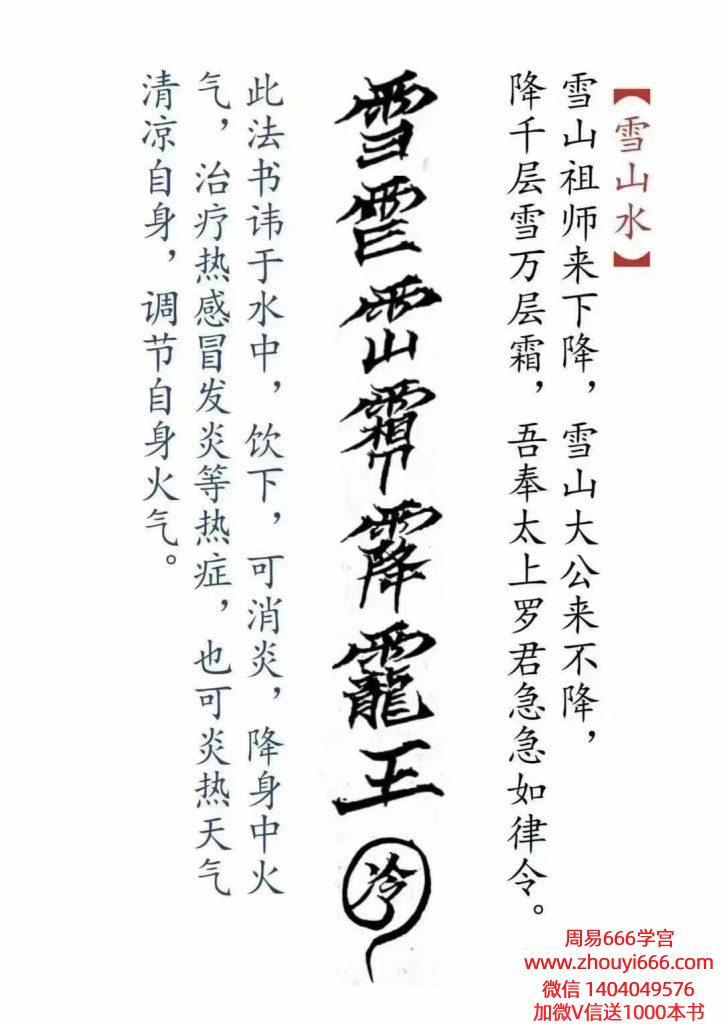 【雪山水】
雪山祖师来下降，雪山大公来不降，
降千层雪万层霜，吾奉太上罗君急急如律令。
雪靇王冷
此法书讳于水中，饮下，可消炎，降身中火
气，治疗热感冒发炎等热症，也可炎热天气
清凉自身，调节自身火气。
周易666学宫
www.zhouyi666.com
微信 1404049576
加微V信送1000本书